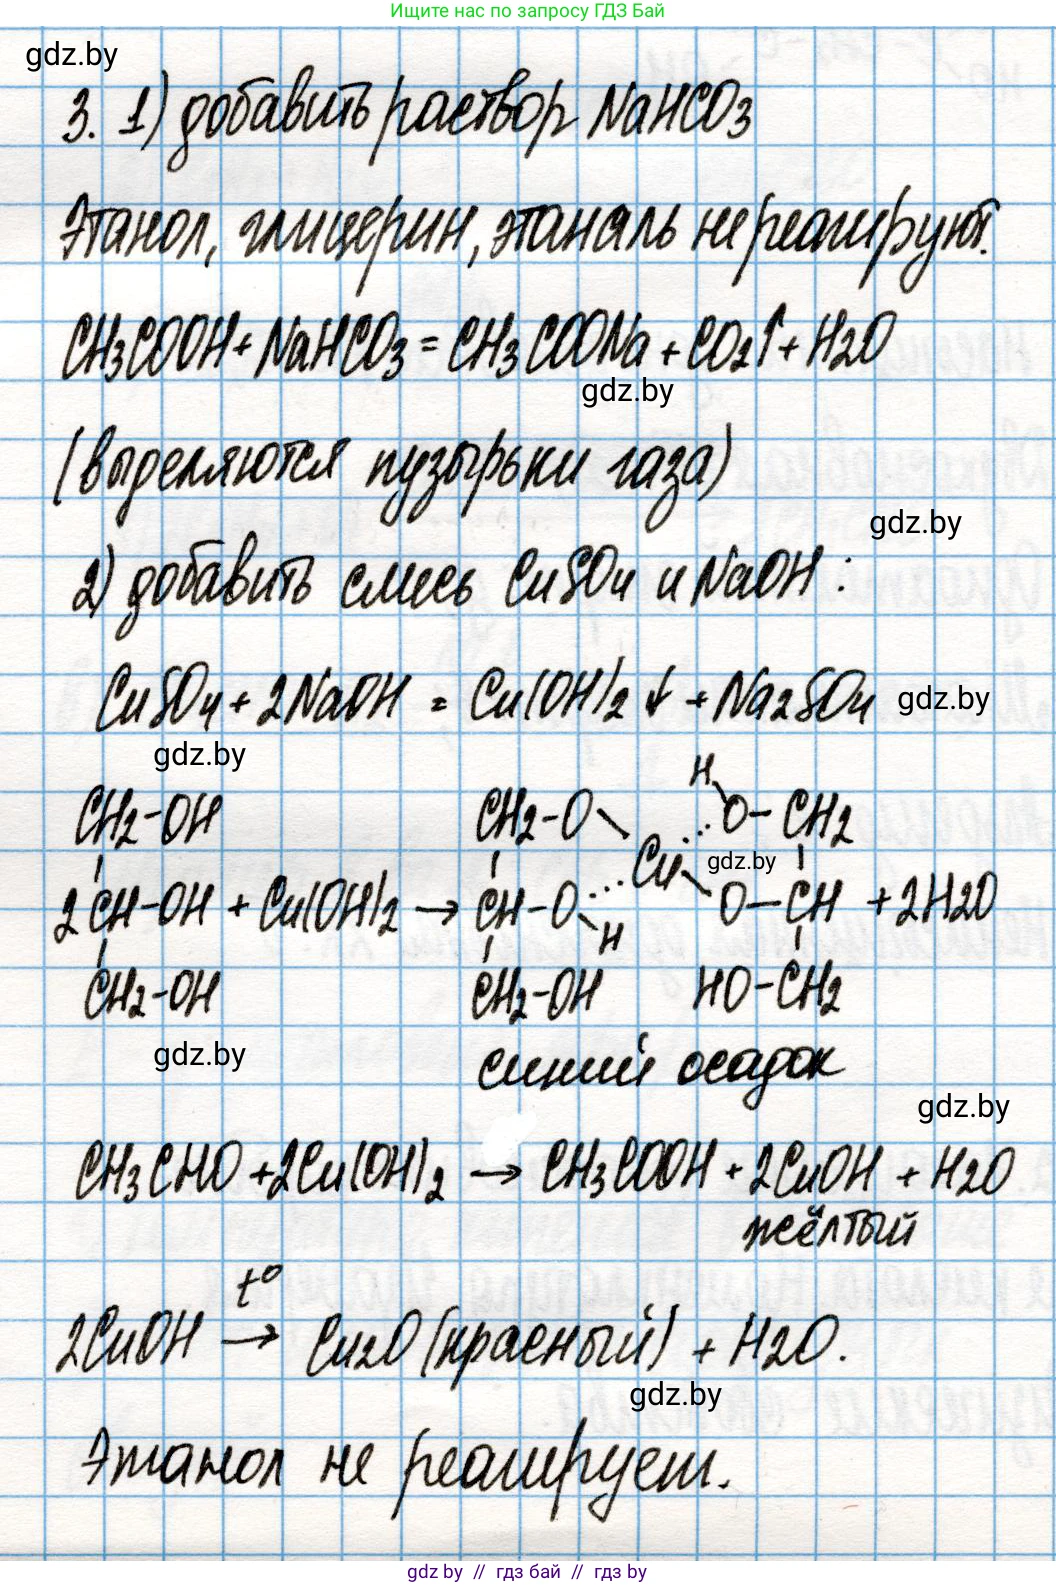 Ищите нас по запросу ГДЗ Бай
gdz.by
3. 1) добавить раствор NaHCO3
Этанол, глицерин, этаналь не реагируют.
CH3COOH + NaHCO3 = CH3COONa + CO2↑ + H2O
gdz.by
(выделяются пузырьки газа)
gdz.by
2) добавить смесь CuSO4 и NaOH:
CuSO4 + 2NaOH = Cu(OH)2↓ + Na2SO4 gdz.by
gdz.by
H
CH2-OH CH2-O O-CH2
Cu gdz.by
2CH-OH + Cu(OH)2 → CH-O O-CH + 2H2O
H
CH2-OH CH2-OH HO-CH2
gdz.by
синий осадок
gdz.by
CH3CHO + 2Cu(OH)2 → CH3COOH + 2CuOH + H2O
жёлтый
t°
2CuOH → Cu2O (красный) + H2O.
gdz.by
Этанол не реагирует.
gdz.by // гдз бай // гдз by